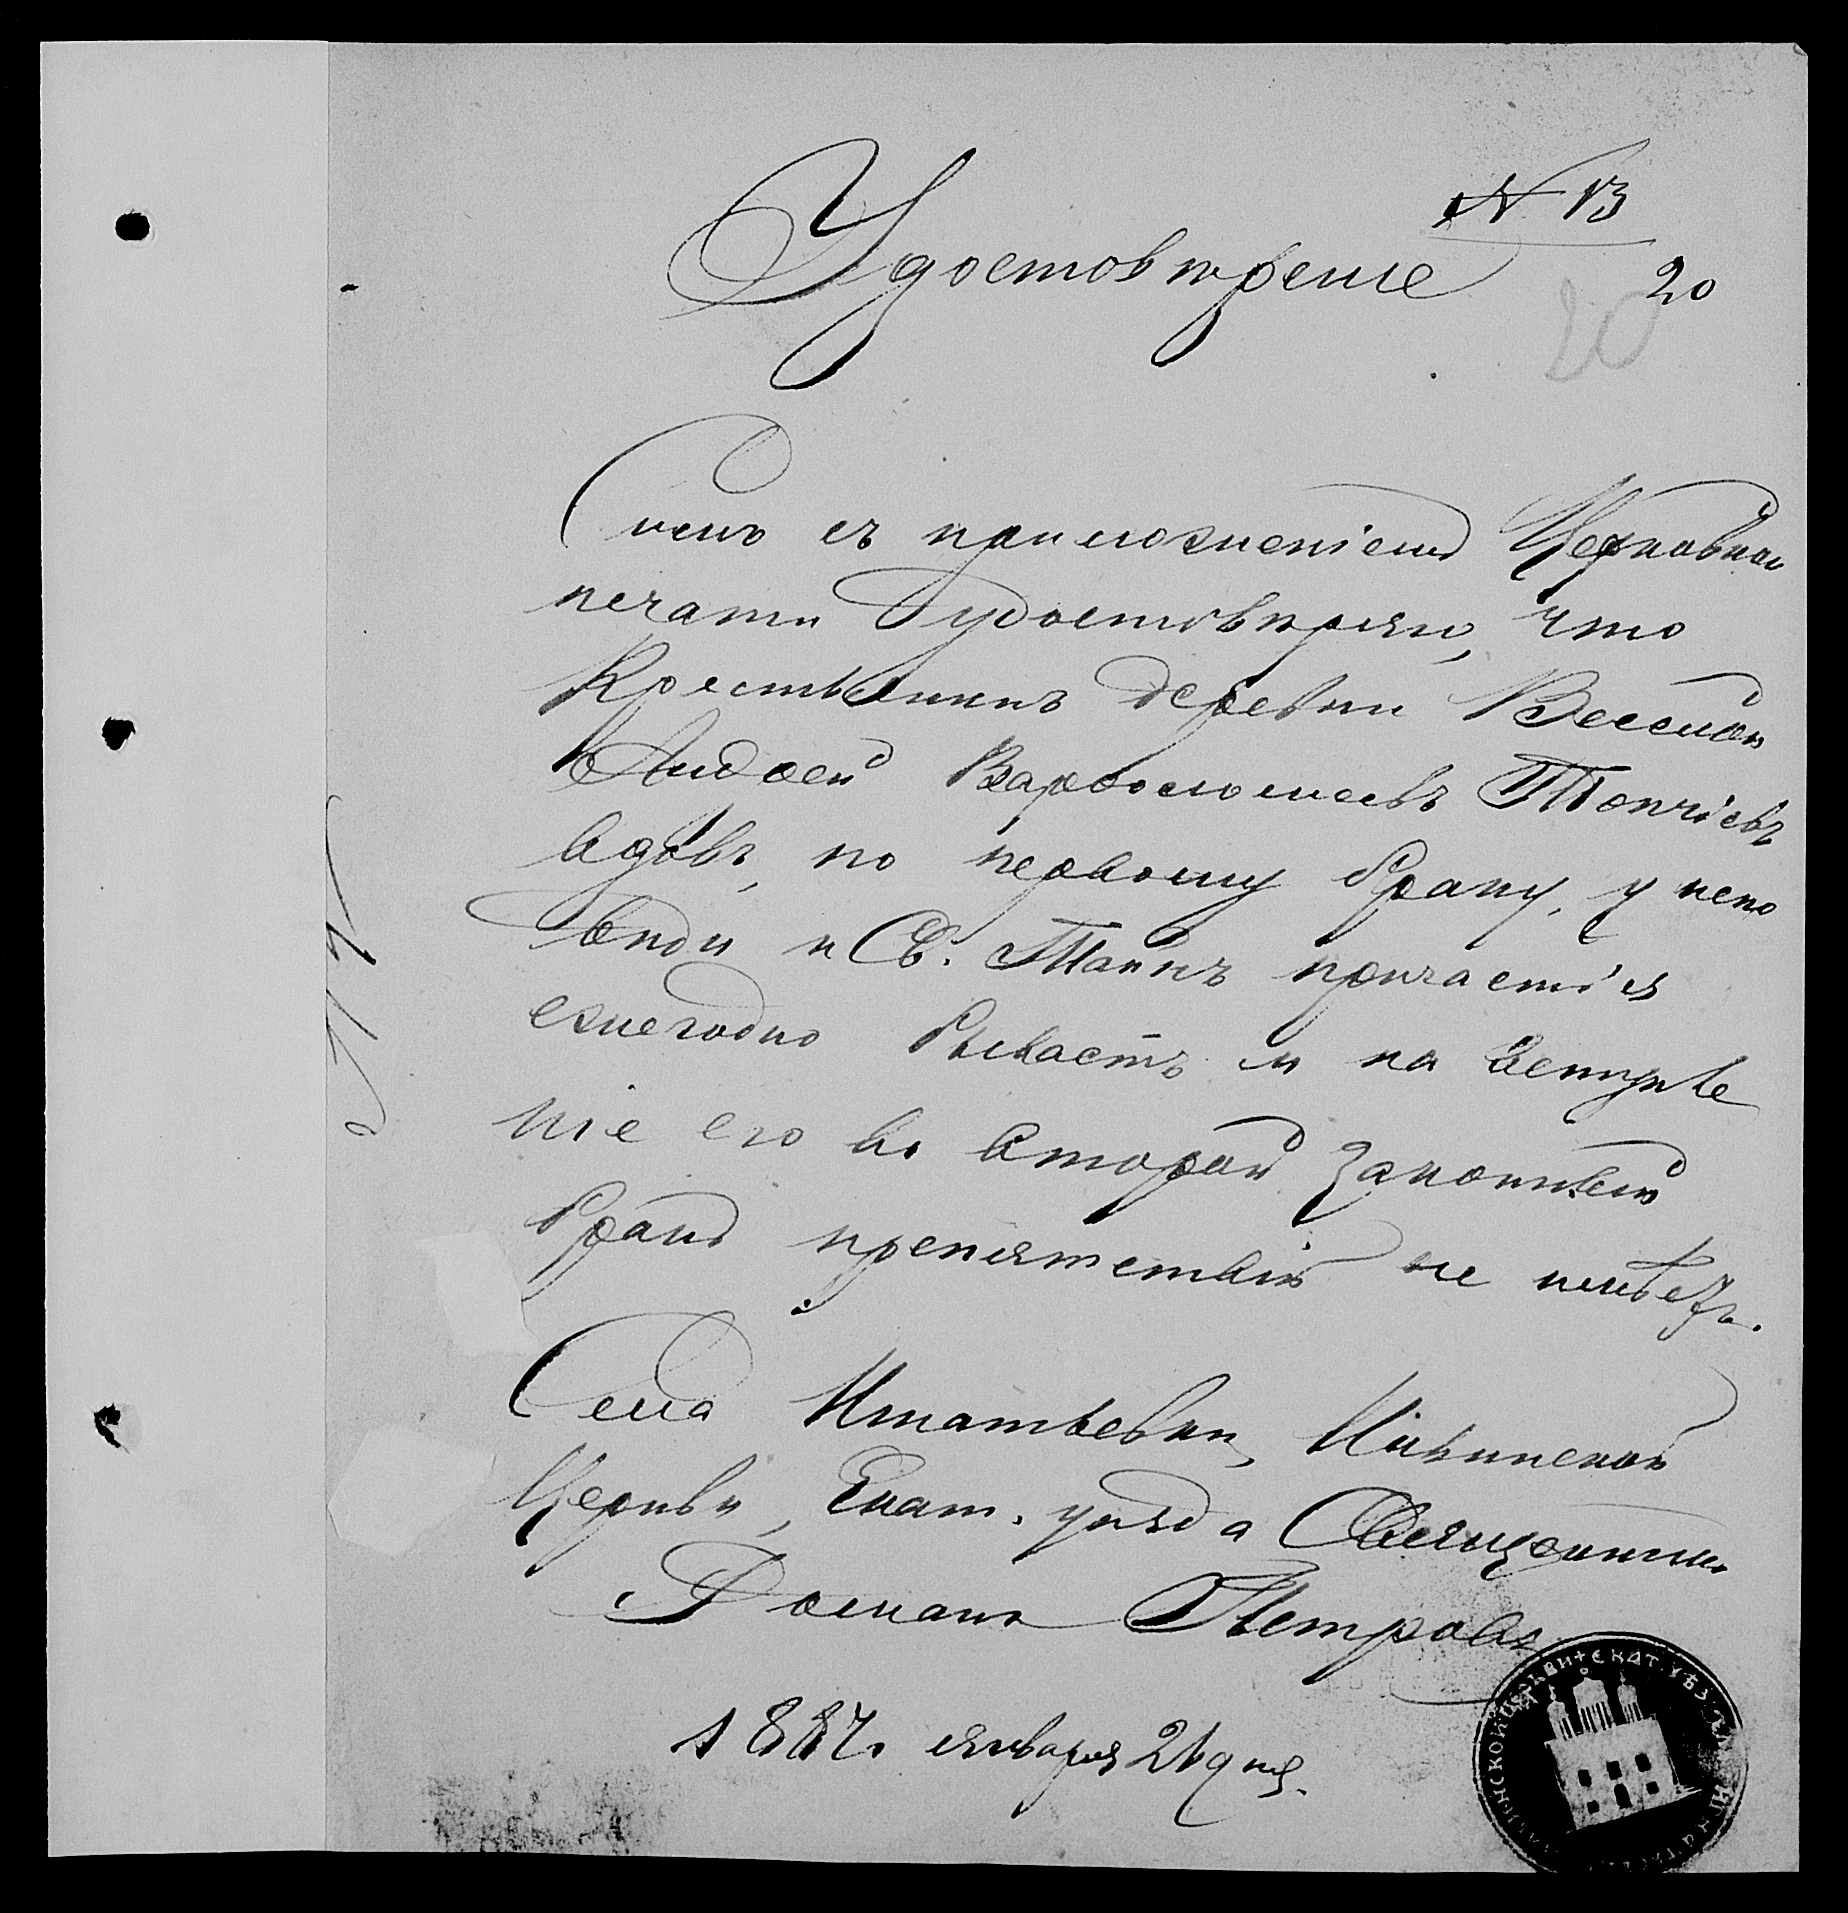 № 13
Удостовѣренiе
20
20
Симъ съ приложенiемъ Церковной
печати удостовѣряю, что
Крестьянинъ деревни Веселой
Андрей Варфоломеевъ Топчiевъ
вдовъ, по первому браку, у испо
вѣди и Св. Таинъ причастiя
ежегодно бываетъ и на вступле
нiе его во второй законный
бракъ препятствiй не имѣетъ.
Села Игнатьевки, Iльинской
Церкви, Екат. уѣзда Священникъ
Романъ Петровъ
1887. января 21 дня.
ЦЕРКВИ + ЕКАТ. УѢЗ.